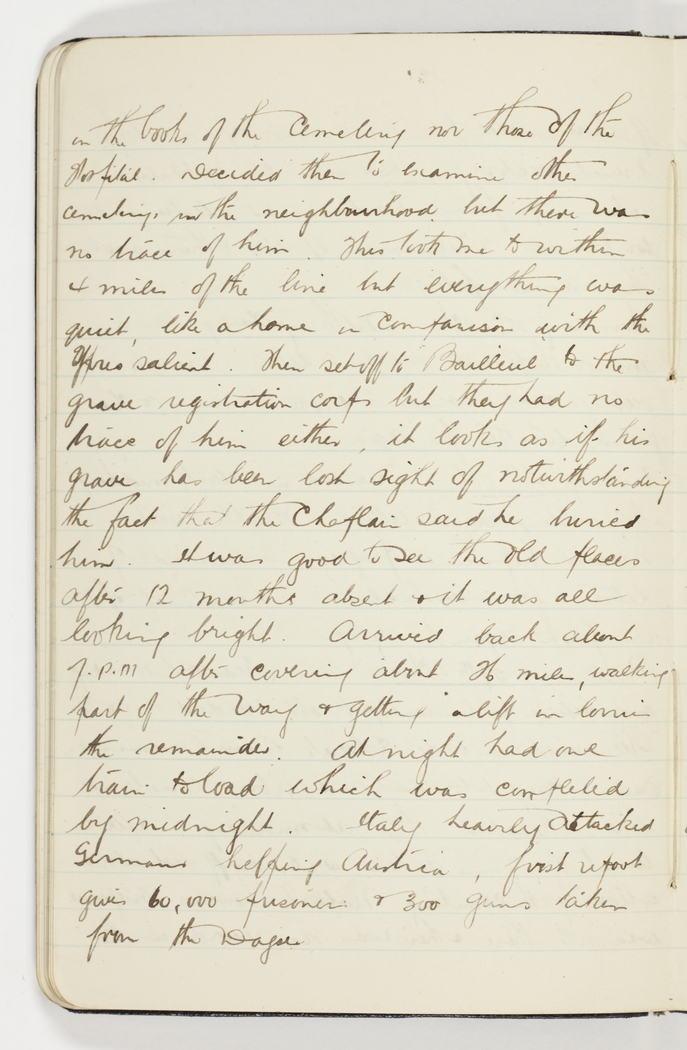 in the books of the Cemeterry nor those of the
Hospital. Decided then to examine other
cemeterys in the neighbourhood but there was
no trace of him. This took me to within
4 miles of the line but everything was
quiet, like a home in comparison with the
Ypres salient. Then set off to Bailleul to the
grave registration corps but they had no
trace of him either, it looks as if his
grave has been lost sight of notwithstanding
the fact that the Chaplain said he buried
him. It was good to see the old places
after 12 months absent & it was all
looking bright. Arrived back about
7.p.m after covering about 36 miles, walking
part of the way & getting a lift in lorries
the remainder. At night had one
train to load which was completed
by midnight. Italy heavily attacked
Germans helping Austria, first report
gives 60,000 prisoners & 300 guns taken
from the Dagoes